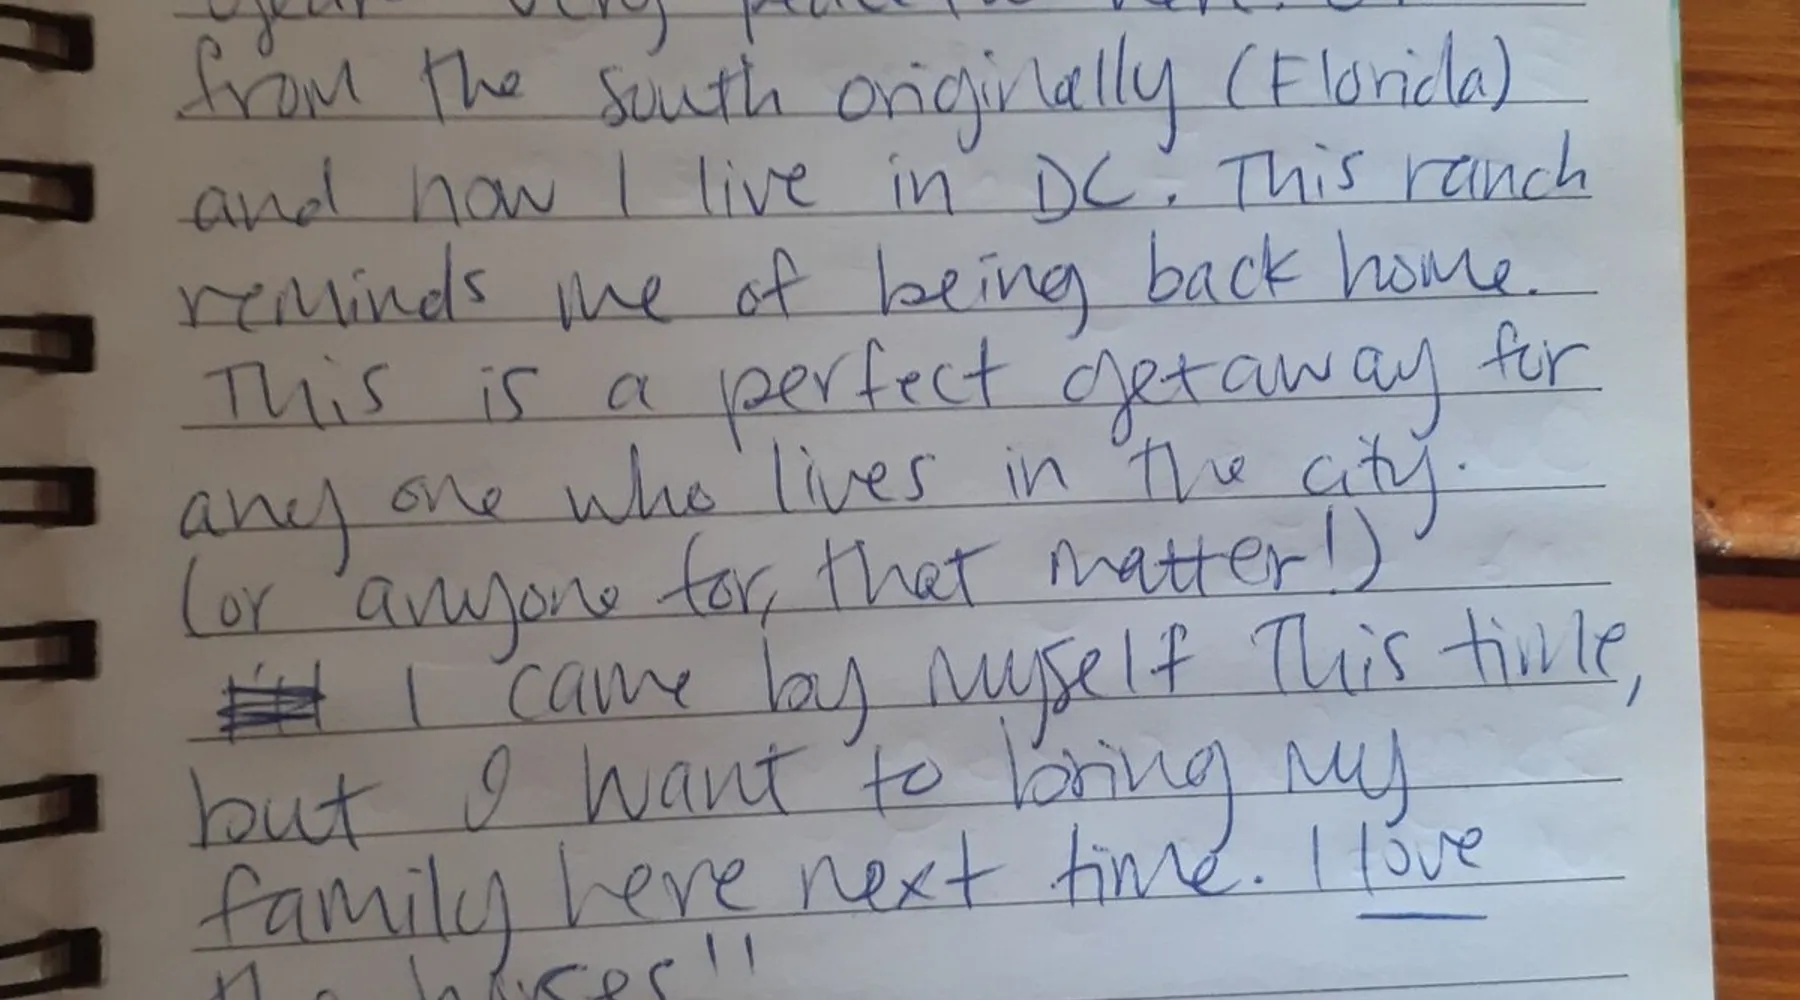 very
from the south originally (Florida)
and now I live in DC. This ranch
reminds me of being back home.
This is a perfect getaway for
any one who lives in the city.
(or anyone for, that matter!)
I came by myself This time,
but I want to bring my
family here next time. I love
the horses!!